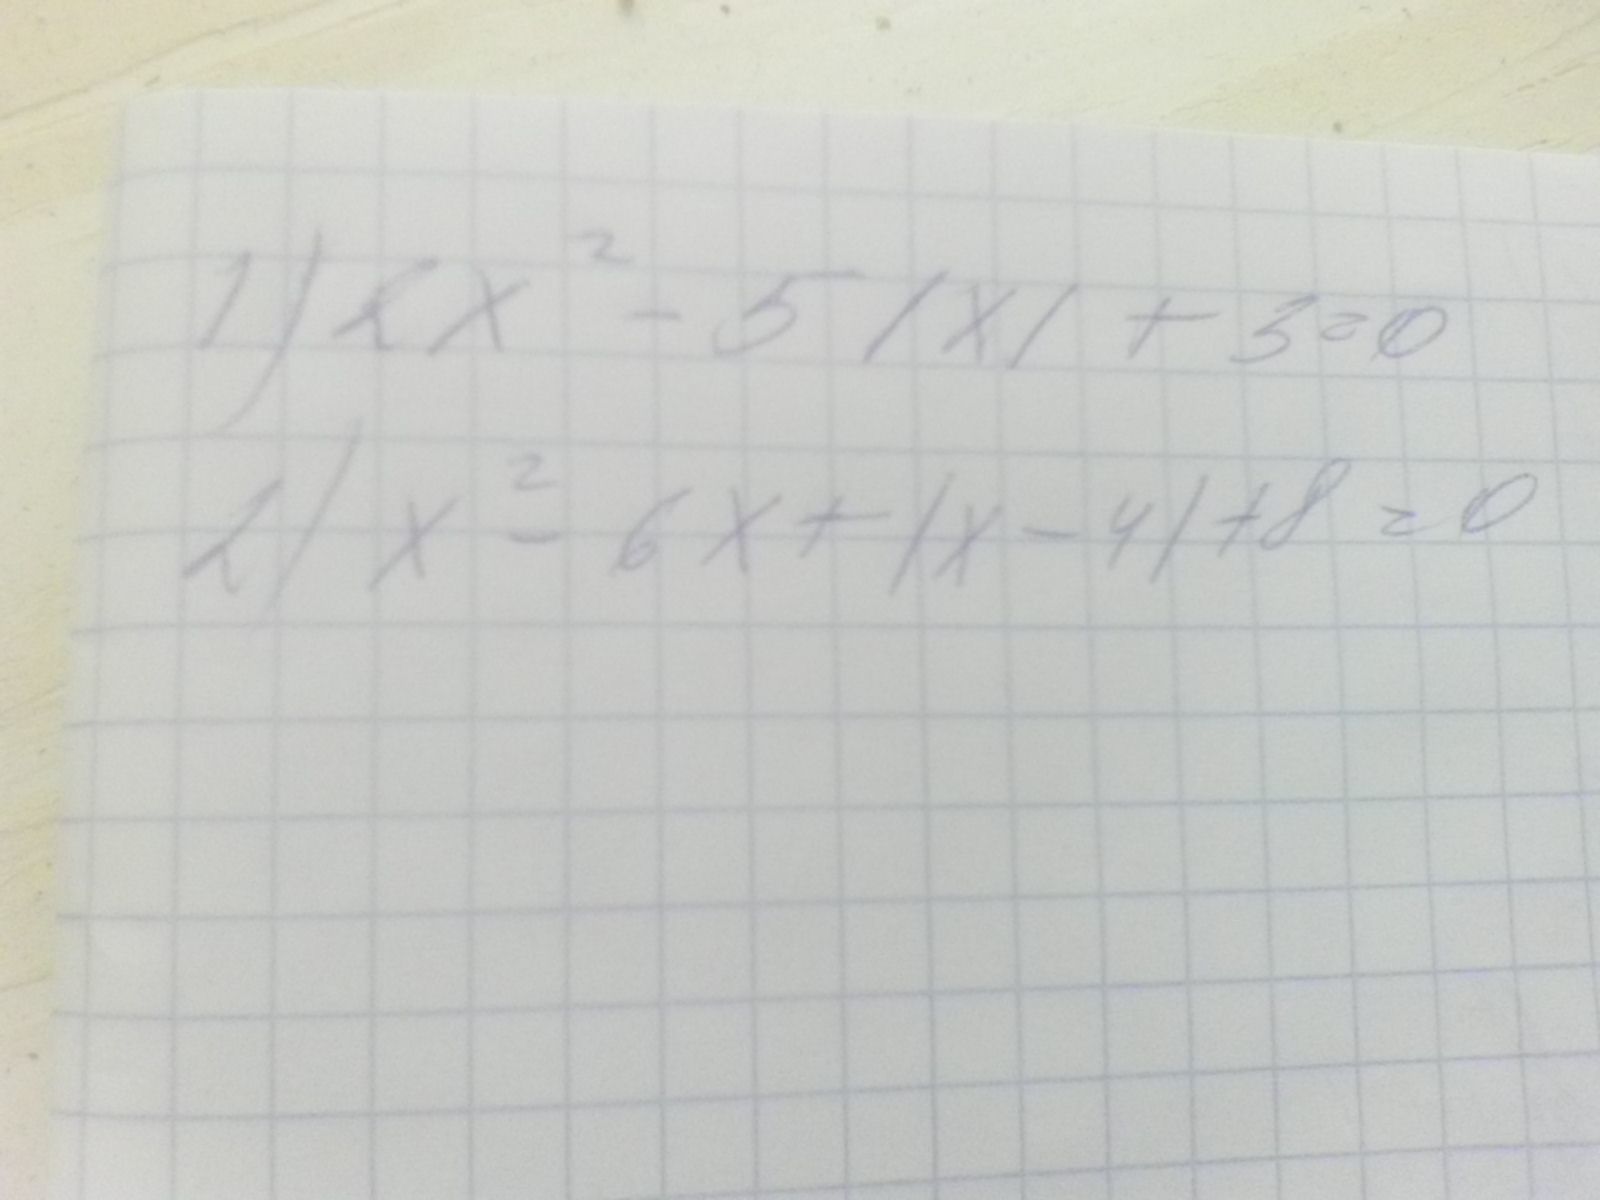 1) 2x² - 5|x| + 3=0
2) x² - 6x + |x - 4| + 8 = 0